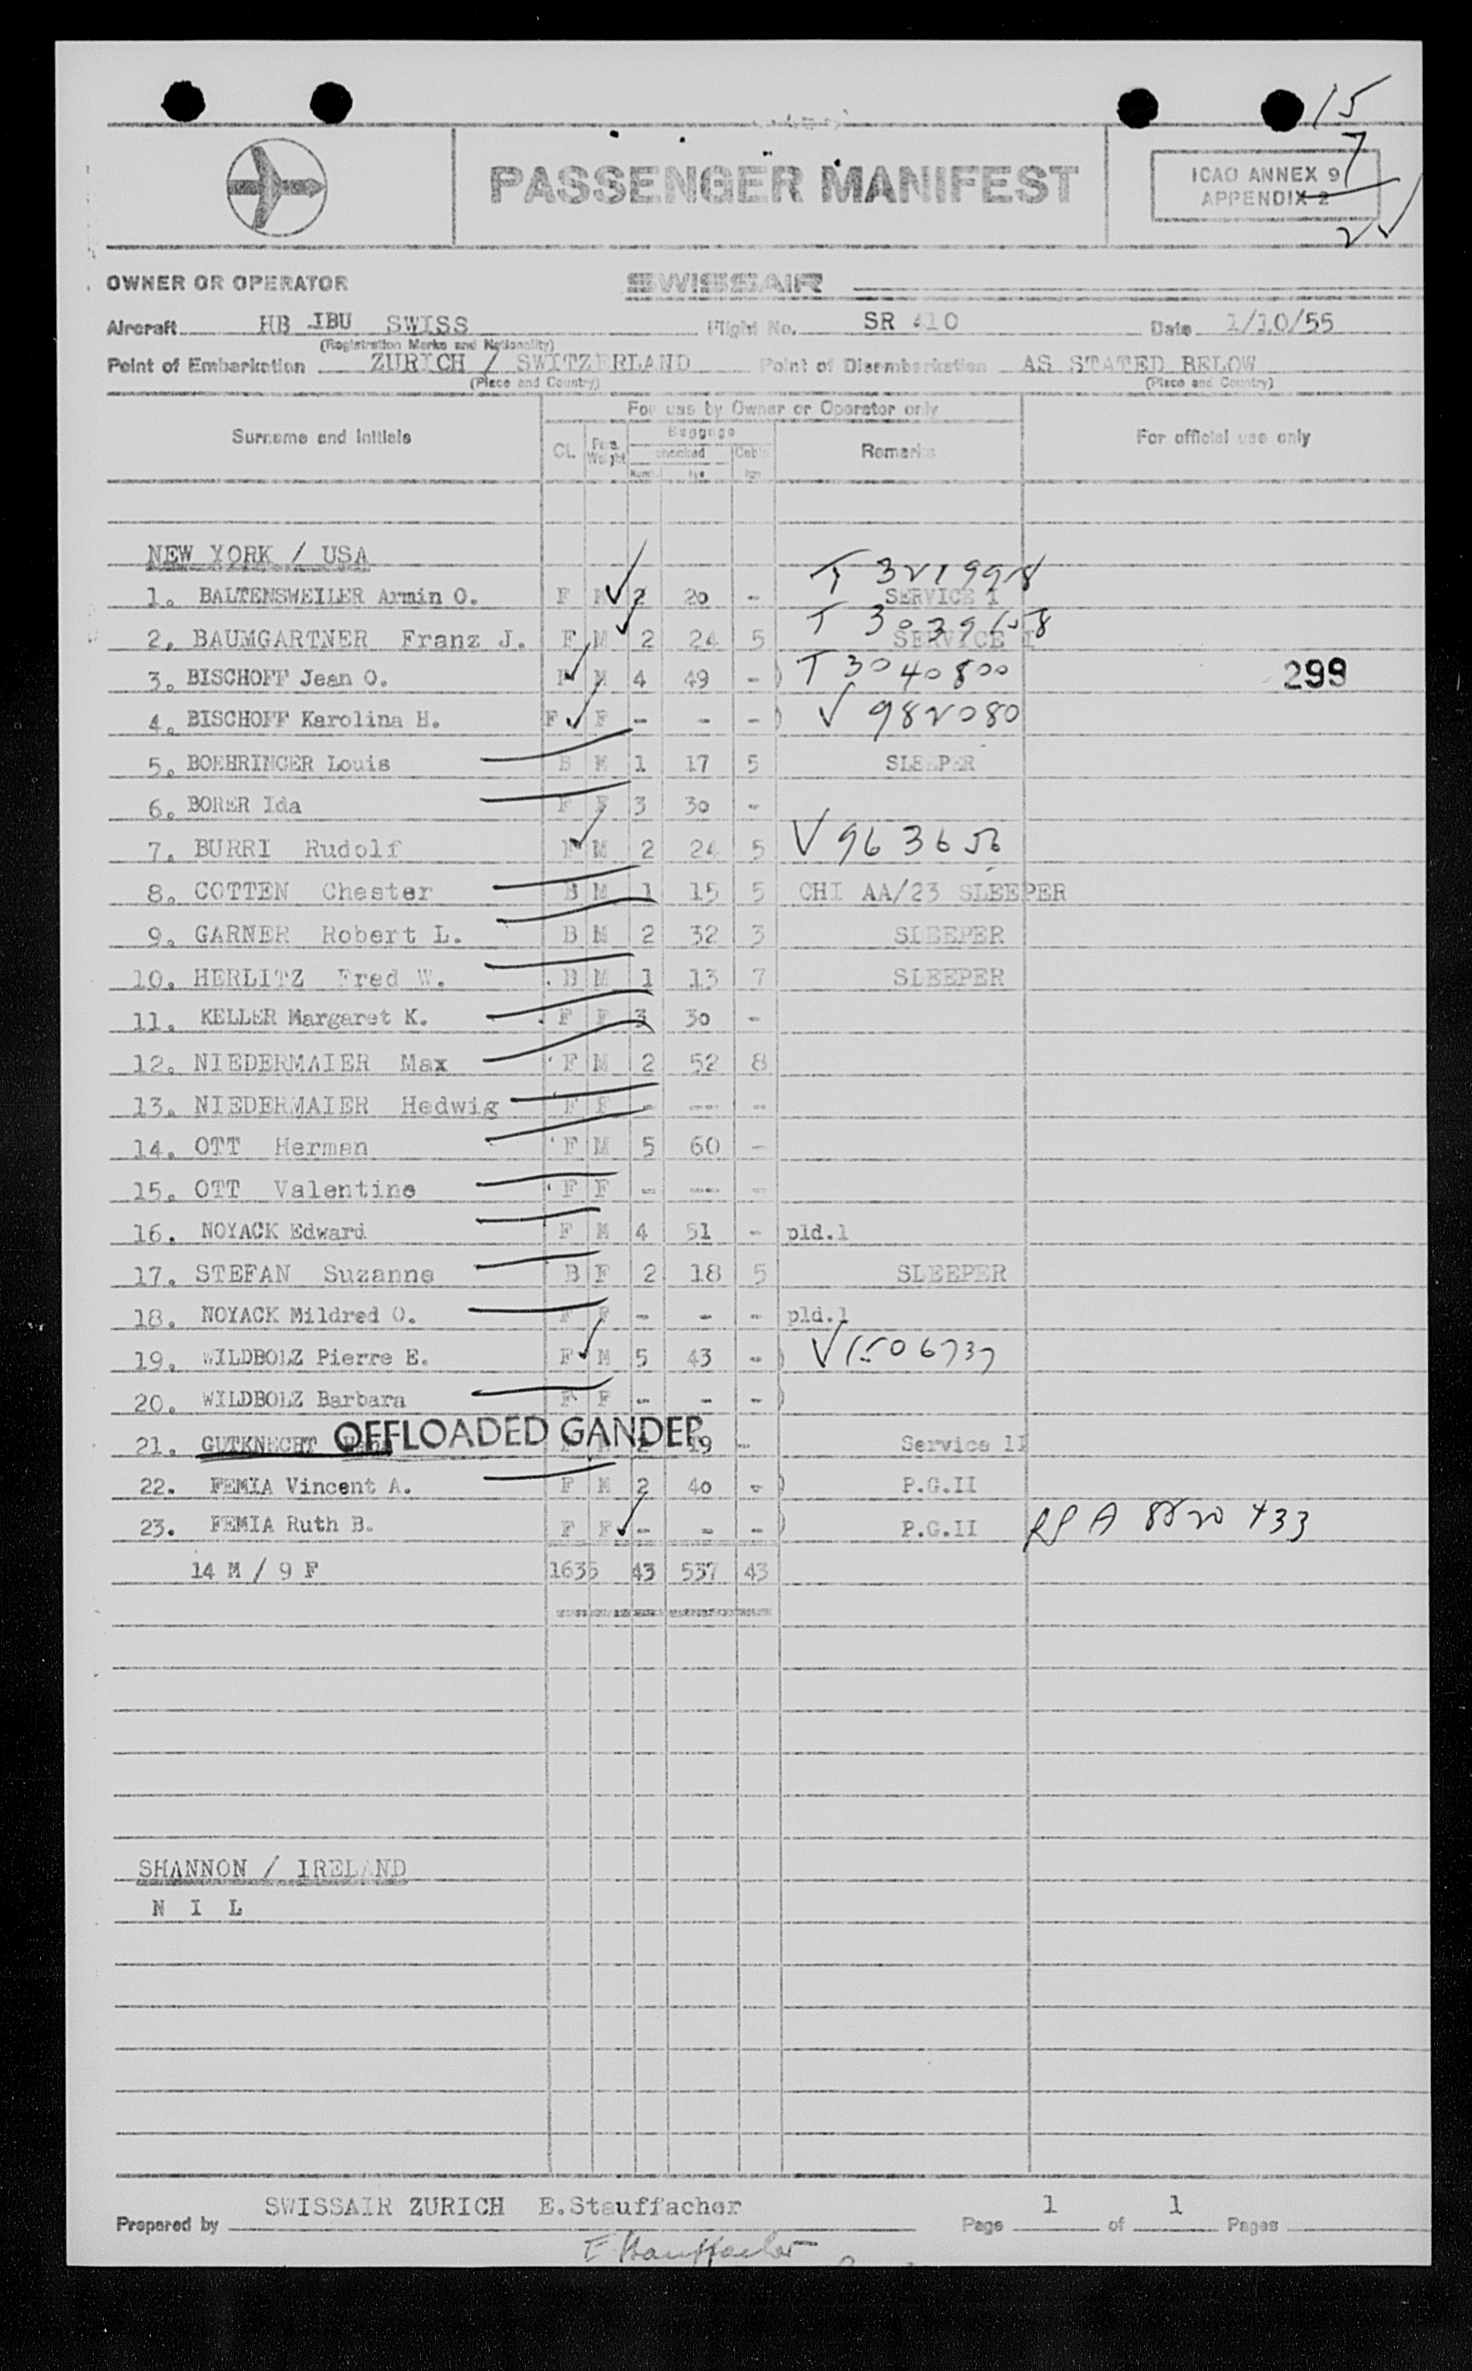 15
PASSENGER MANIFEST
7
ICAO ANNEX 9
APPENDIX 2
OWNER OR OPERATOR SWISSAIR
Aircraft HB IBU SWISS Flight No. SR 410 Date 1/10/55
(Registration Marks and Nationality)
Point of Embarkation ZURICH / SWITZERLAND Point of Disembarkation AS STATED BELOW
(Place and Country) (Place and Country)
For use by Owner or Operator only
Surname and Initials CL. Pass. Weight Baggage checked Cabin Remarks For official use only
NEW YORK / USA
T 321998
1. BALTENSWEILER Armin O. F M 2 20 - SERVICE I
T 3039658
2. BAUMGARTNER Franz J. F M 2 24 5 SERVICE I
3. BISCHOFF Jean O. F M 4 49 -) T 3040800 299
4. BISCHOFF Karolina H. F F - - -) V 982080
5. BOEHRINGER Louis B M 1 17 5 SLEEPER
6. BORER Ida F F 3 30 -
7. BURRI Rudolf F M 2 24 5 V 963656
8. COTTEN Chester B M 1 15 5 CHI AA/23 SLEEPER
9. GARNER Robert L. B M 2 32 3 SLEEPER
10. HERLITZ Fred W. B M 1 13 7 SLEEPER
11. KELLER Margaret K. F F 3 30 -
12. NIEDERMAIER Max F M 2 52 8
13. NIEDERMAIER Hedwig F F - --- -
14. OTT Herman F M 5 60 -
15. OTT Valentine F F - --- -
16. NOYACK Edward F M 4 51 - pld.1
17. STEFAN Suzanne B F 2 18 5 SLEEPER
18. NOYACK Mildred O. F F - - - pld.1
19. WILDBOLZ Pierre E. F M 5 43 -) V 1506737
20. WILDBOLZ Barbara F F - - -)
OFFLOADED GANDER
21. GUTKNECHT 19 - Service II
22. FEMIA Vincent A. F M 2 40 -) P.G.II
23. FEMIA Ruth B. F F - - -) P.G.II RP A 8820433
14 M / 9 F 1635 43 537 43
SHANNON / IRELAND
N I L
Prepared by SWISSAIR ZURICH E.Stauffacher Page 1 of 1 Pages
E Stauffacher